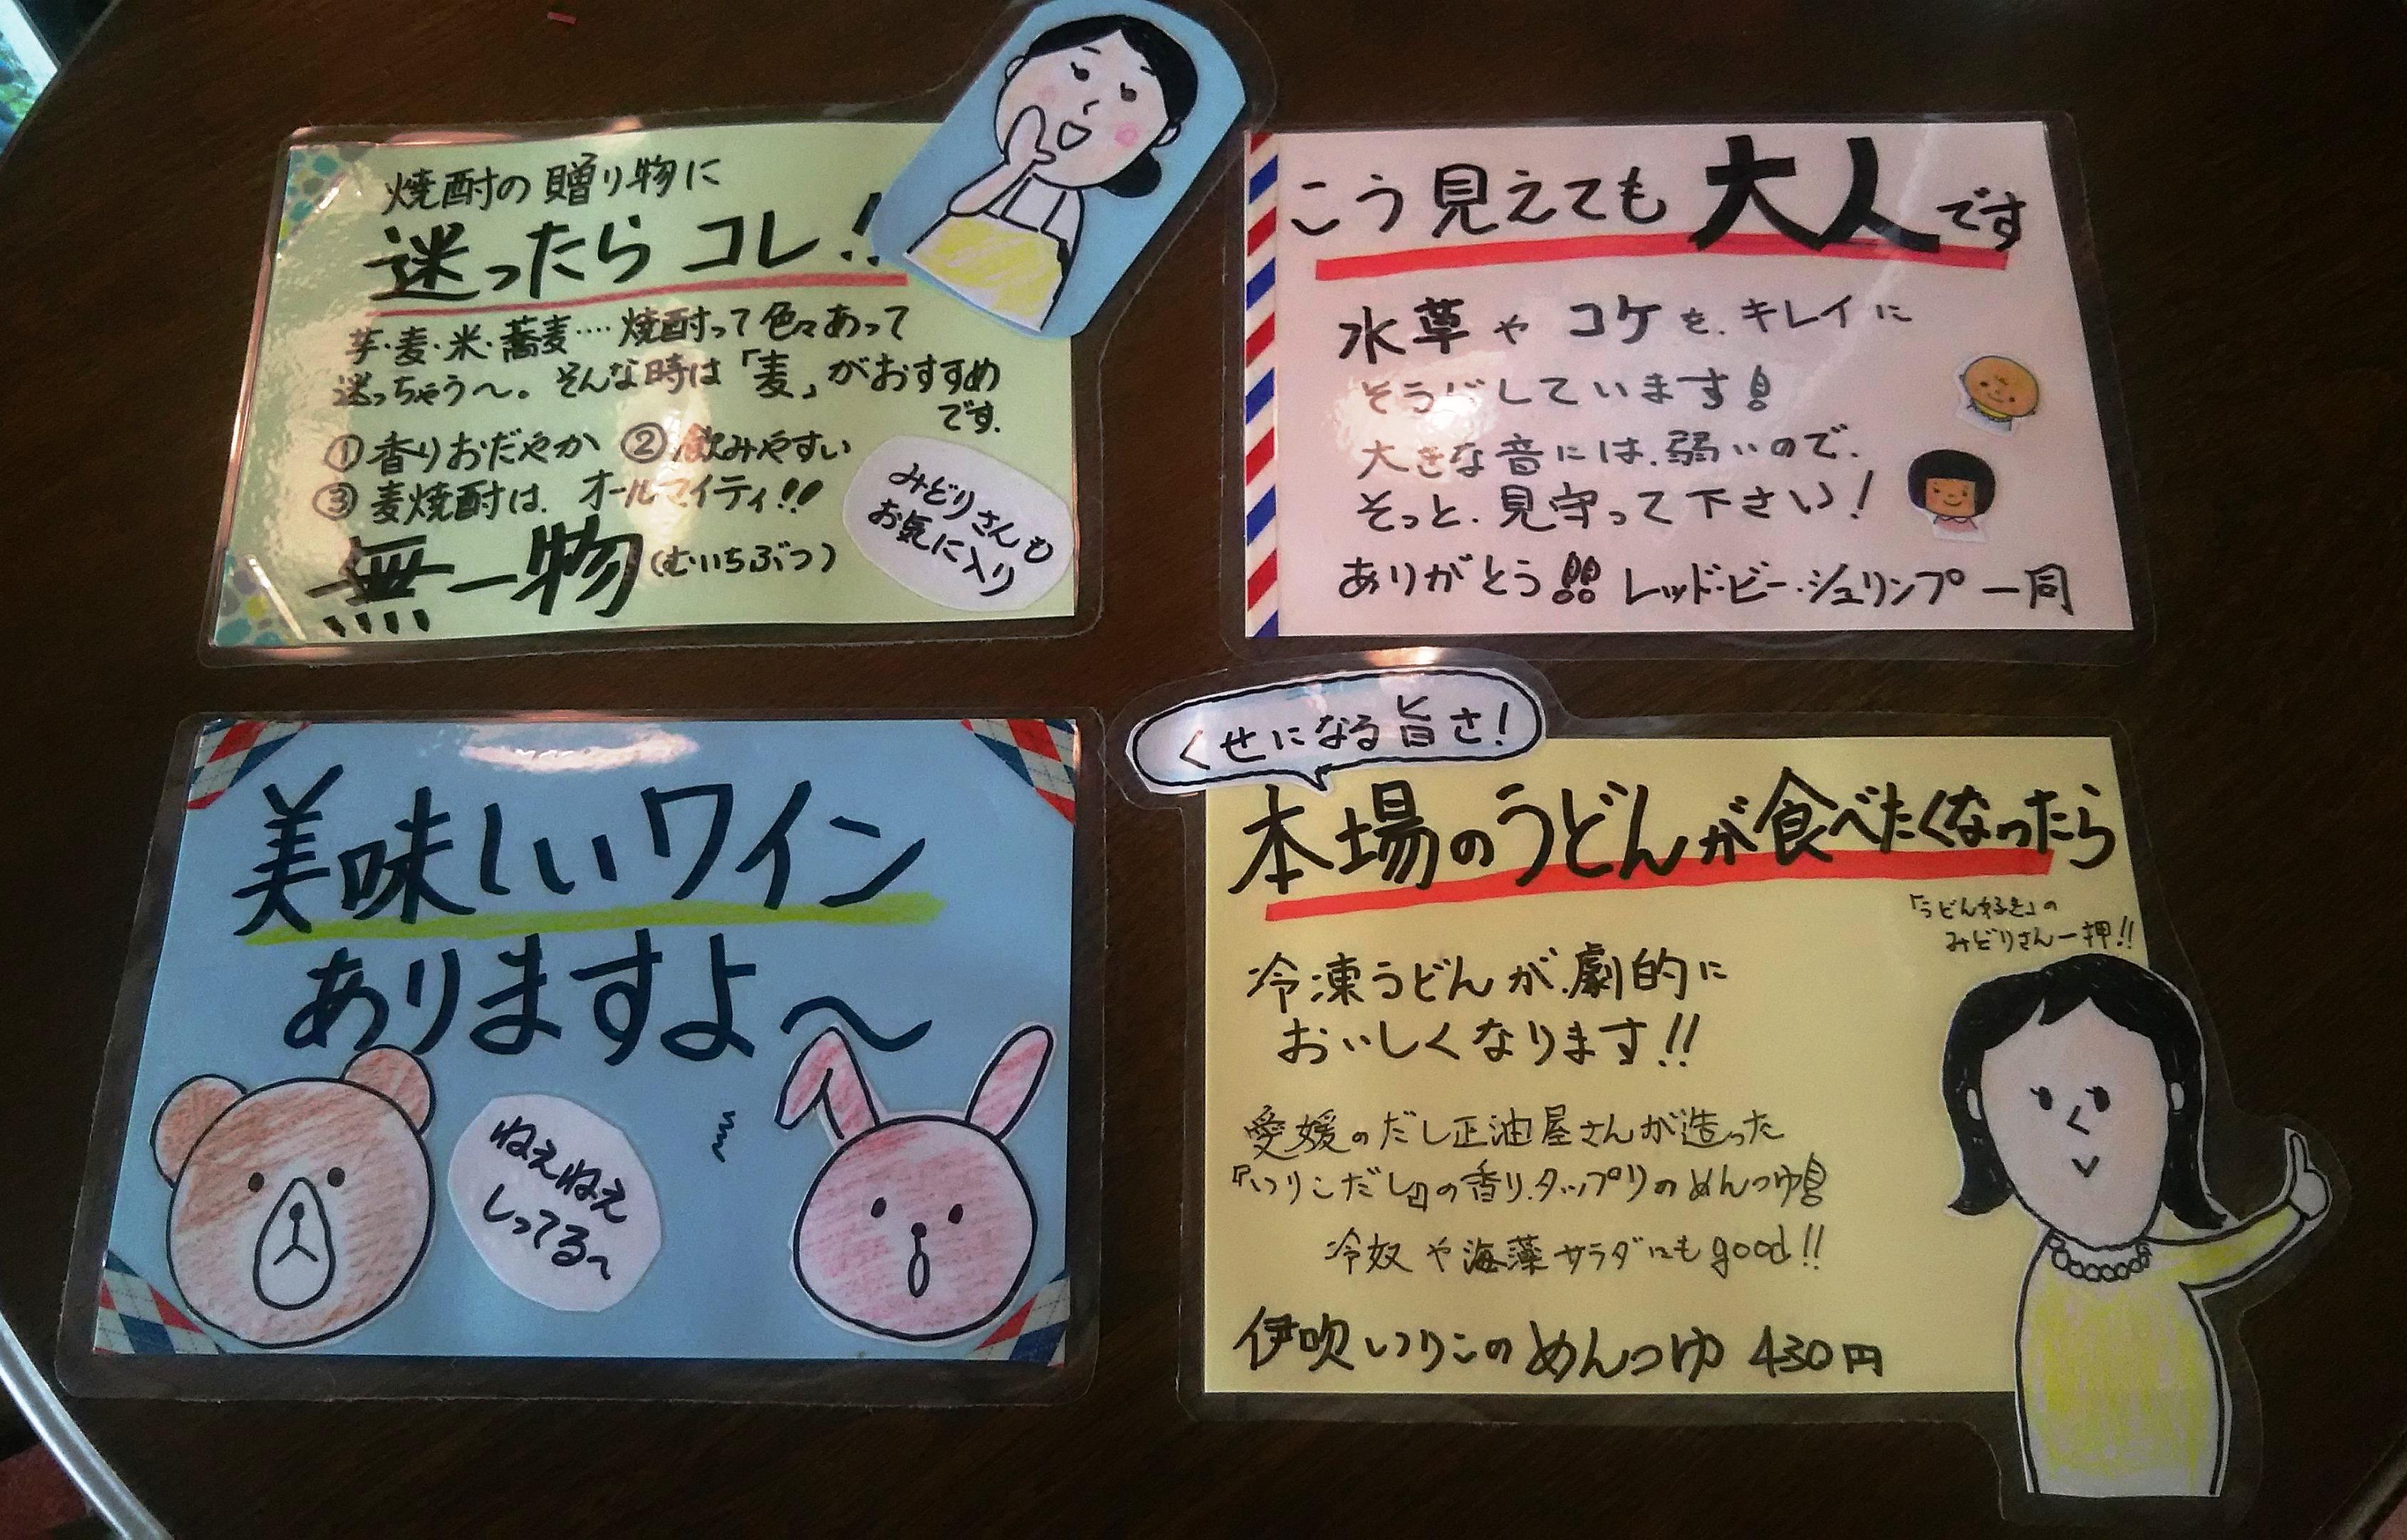 焼酎の贈り物に
迷ったら コレ!!
芋・麦・米・蕎麦‥‥焼酎って色々あって
迷っちゃう〜。そんな時は「麦」がおすすめ
です.
①香りおだやか ②飲みやすい
③麦焼酎は、オールマイティ!!
無一物(むいちぶつ)
みどりさんも
お気に入り
こう見えても大人です
水草やコケを、キレイに
そうじしています!
大きな音には、弱いので、
そっと、見守って下さい!
ありがとう!! レッド・ビー・シュリンプ一同
美味しいワイン
ありますよ〜
ねぇねぇ
しってる〜
くせになる旨さ!
本場のうどんが食べたくなったら
「うどん好き」の
みどりさん一押!!
冷凍うどんが、劇的に
おいしくなります!!
愛媛のだし正油屋さんが造った
『いりこだし』の香り、タップリのめんつゆ!
冷奴や海藻サラダにもgood!!
伊吹いりこのめんつゆ 430円